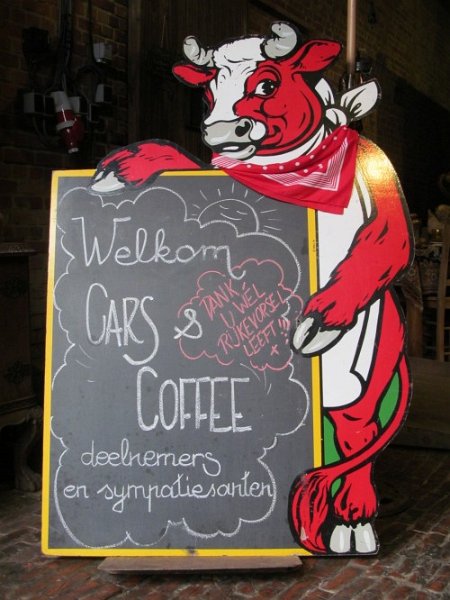 Welkom
CARS &
COFFEE
deelnemers
en sympatiesanten
TANK
U WÉL
RIJKEVORSEL
LEEFT!!!